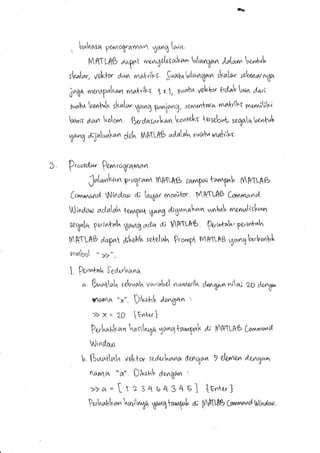 bahasa pemrograman yang lain.
MATLAB dapat menyelesaikan bilangan dalam bentuk
skalar, vektor dan matriks. Suatu bilangan skalar sebenarnya
juga merupakan matriks 1 x 1, suatu vektor tidak lain dari
suatu bentuk skalar yang panjang, sementara matriks memiliki
baris dan kolom. Berdasarkan konteks tersebut segala bentuk
yang dijalankan oleh MATLAB adalah suatu matriks.
3. Prosedur Pemrograman
Jalankan program MATLAB sampai tampak MATLAB
Command Window di layar monitor. MATLAB Command
Window adalah tempat yang digunakan untuk menuliskan
segala perintah yang ada di MATLAB. Perintah-perintah
MATLAB dapat diketik setelah Prompt MATLAB yang berbentuk
simbol ">>".
1. Perintah Sederhana
a. Buatlah sebuah variabel numerik dengan nilai 20 dengan
nama "x". Diketik dengan :
>> x = 20 {Enter}
Perhatikan hasilnya yang tampak di MATLAB Command
Window
b. Buatlah vektor sederhana dengan 9 elemen dengan
nama "a". Diketik dengan :
>> a = [1 2 3 4 6 4 3 4 5] {Enter}
Perhatikan hasilnya yang tampak di MATLAB Command Window.